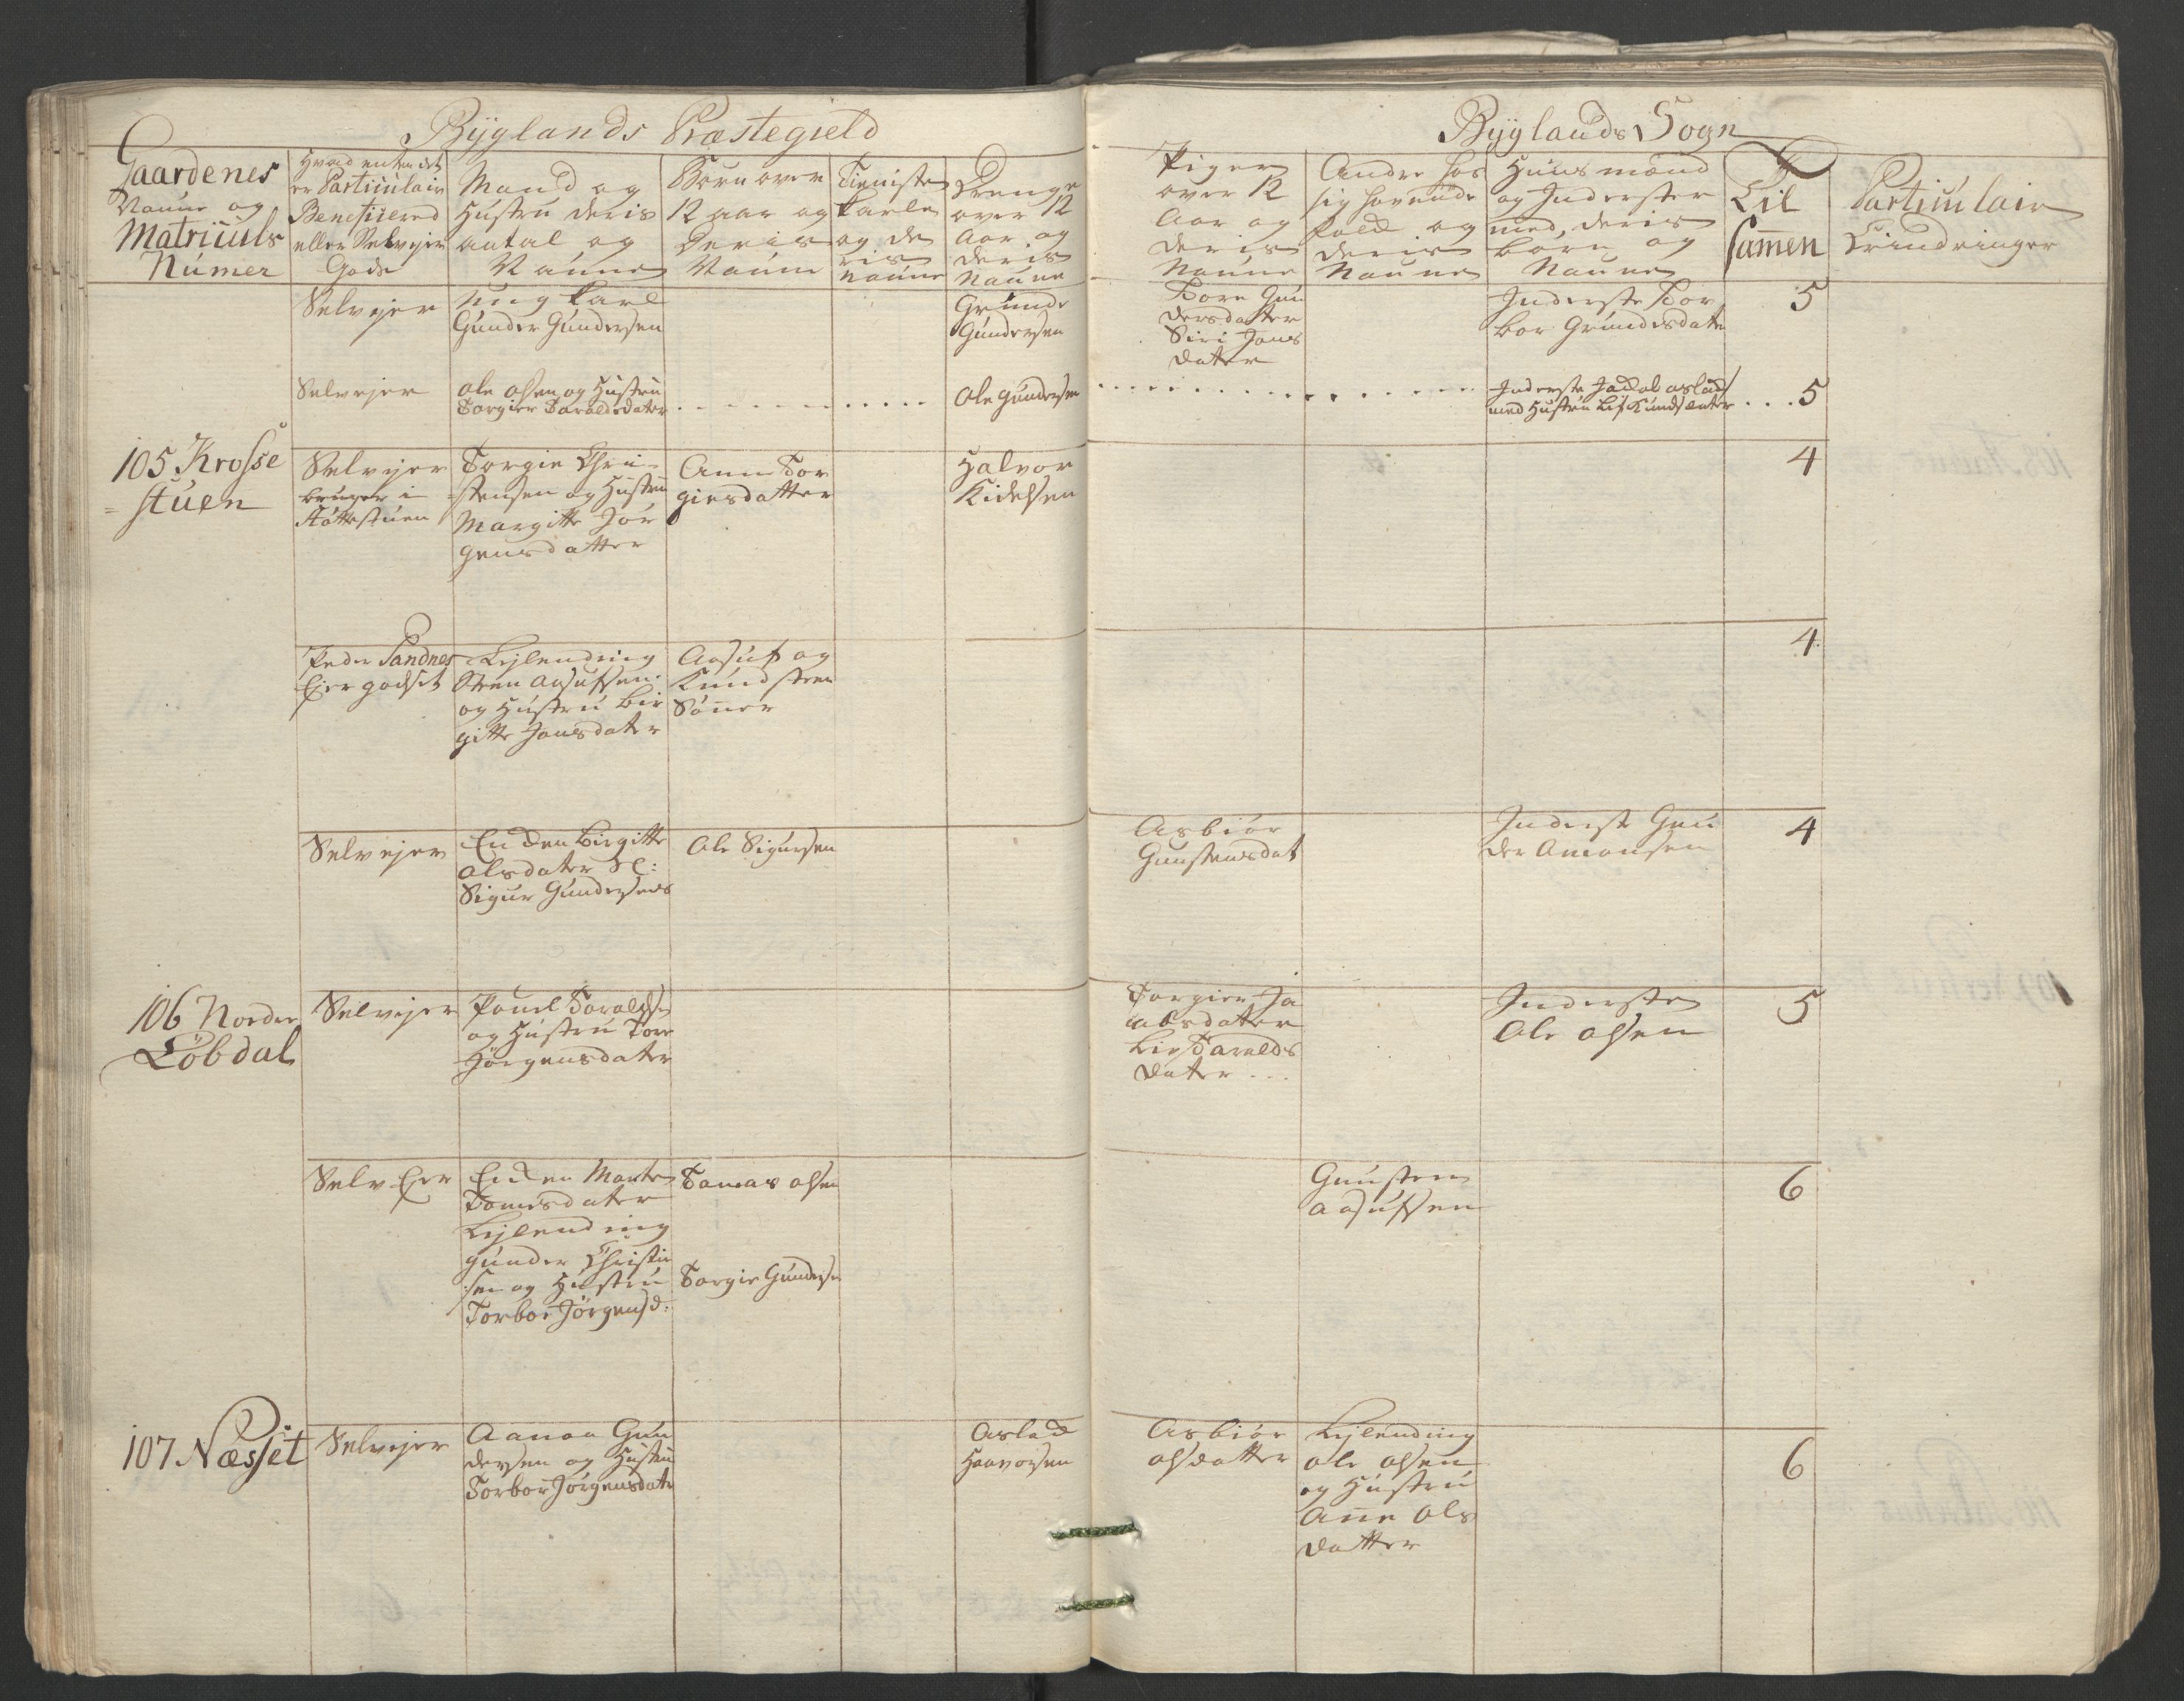 Byglands Præstegield
Byglands Sogn
Gaardenes
Naune og
Matriculs
Númer
Hvad enten det
er Particulair
Beneficered
eller Selvejer
Gods
Mand og
Hustru deris
antal og
Naune
Børn over
12 aar og
Deris
Naune
Tieniste
karle
og de
ris
naune
Drenge
over 12
Aar og
deris
Naune
Piger
over 12
Aar og
deris
Naune
Andre hos
sig havende
folk og
deris
Naune
Huusmænd
og Inderster
med deris
børn og
Naune
Til
samen
Particulair
Erindringer
Selvejer
ung karl
Gunder Gundersen
Grunde
Gundersen
Tore Gun
dersdatter
Siri Jons
dater
Inderste Tor
bor Grundesdater
5
Selvejer
ole olsen og Hustru
Torgier Taraldsdater
Ole Gundersen
Inderste
med Hustru Liv Knudsdater
5
105 Krosse
stuen
Selvejer
bruger i
Torgie Chri
stensen og Hustru
Margitte Jör
gensdatter
Anne Tor
giesdatter
Halvor
Kidelsen
4
Peder Sandnes
Eier godset
Lejlending
Sten Asufsen
og Hustru Bir
gitte Jonsdater
Asuf og
Knud sten
Sönner
4
Selvejer
Enken Birgitte
olsdater Sl:
Sigur Gundersens
Ole Sigursen
Asbiör
Gunstensdat
Inderste Gun
der Amonsen
4
106 Norder
Löbdal
Selvejer
Povel Taraldsen
og Hustru Tore
Jörgensdater
Torgier Ja
cobsdater
Liv Taralds
dater
Inderste
Ole olsen
5
Selv Eier
Enken Marte
Tomesdater
Lejlending
gunder Christen
sen og Hustru
Torbor Jörgensd:
Tomas olsen
Torgie Gundersen
Gunsten
asufsen
6
107 Næsset
Selvejer
Aanon Gun
dersen og Hustru
Torbor Jörgensdater
Aslad
Haavorsen
Asbiör
olsdatter
Lejlending
ole olsen
og Hustru
Anne ols
datter
6